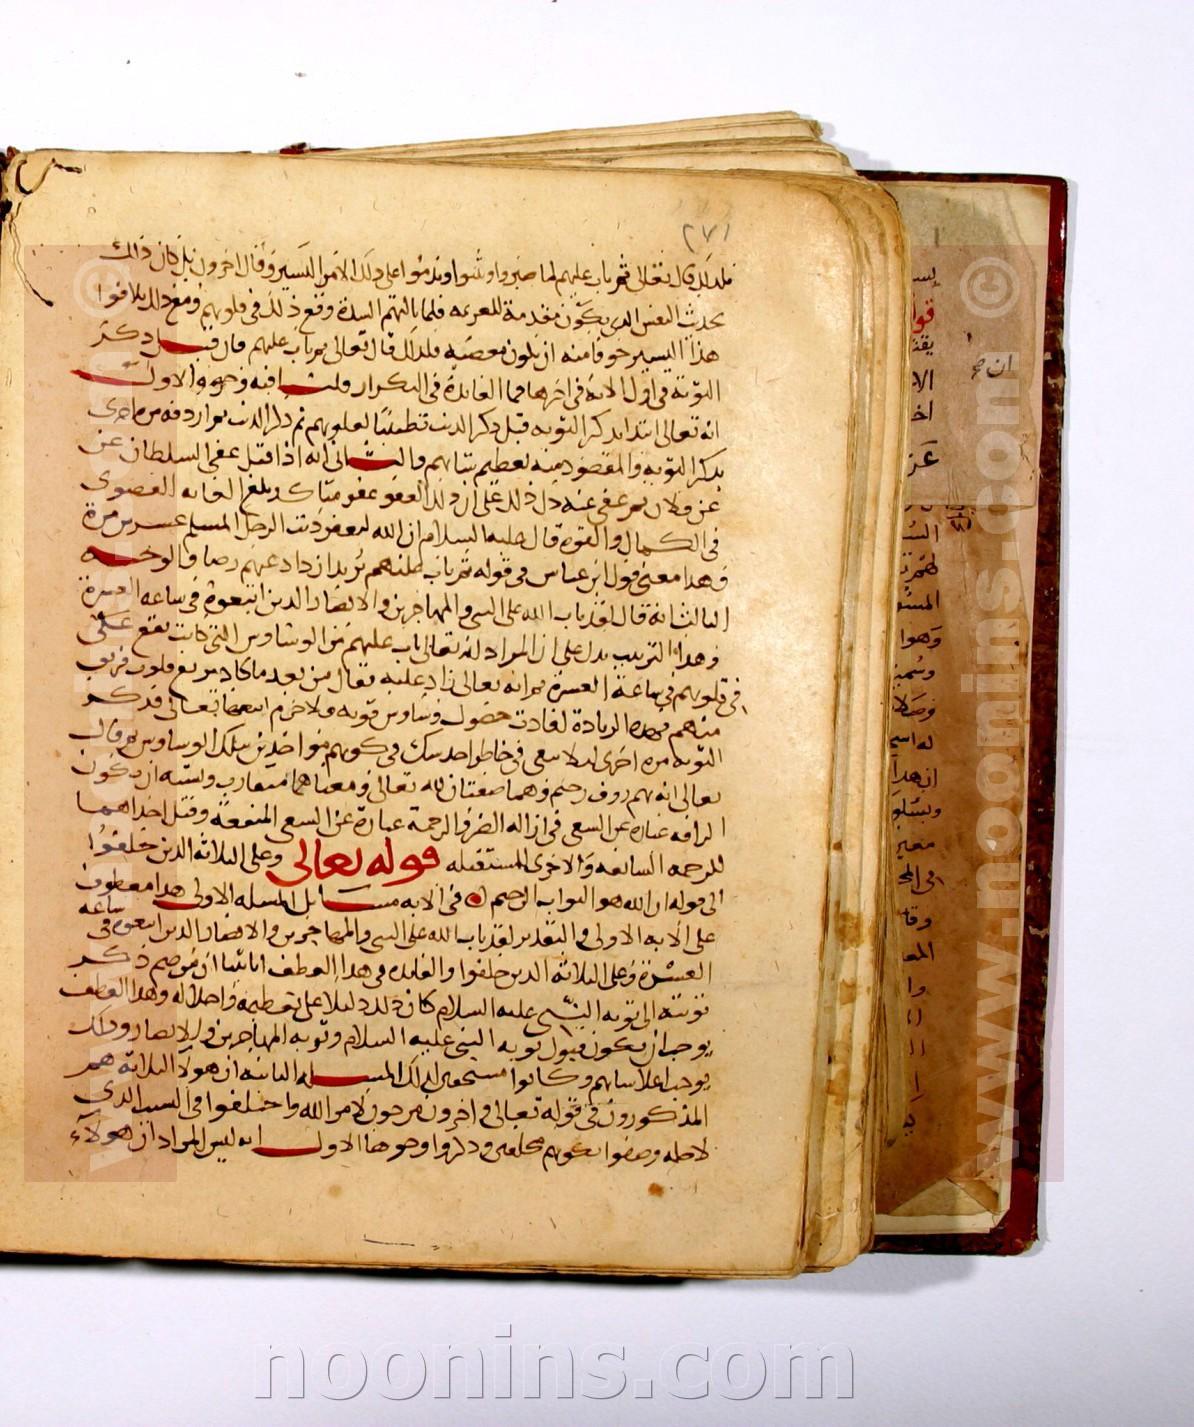 ٢٧١
فلذلك قال تعالى ثم تاب عليهم لما صبروا وثبتوا وندموا على ذلك الامر اليسير وقال اخرون بل كان ذلك
بحديث النفس الذى يكون مقدمة للعزيمة فلما نالتهم الشدة وقع ذلك فى قلوبهم ومع ذلك تلافوا
هذا اليسير خوفا منه ان يكون معصيه فلذلك قال تعالى ثم تاب عليهم فان قيل ذكر
التوبة فى اول الاية فى اخرها فما الفايدة فى التكرار قلنا فيه وجوه الاول
انه تعالى ابتدا بذكر التوبه قبل ذكر الذنب تطييبا لقلوبهم ثم ذكر الذنب ثم اردفه مره اخرى
بذكر التوبه والمقصود منه تعظيم شانهم والثانى انه اذا قيل عفى السلطان عن
عن فلان ثم عفى عنه دل ذلك على ان ذلك العفو عفو متاكد وبلغ الغايه القصوى
فى الكمال والقوة قال عليه السلام ان الله ليغفر ذنب الرجل المسلم عشرين مرة
وهذا معنى قول ابن عباس فى قوله ثم تاب عليهم يريد ازداد عنهم رضا والوجه
الثالث انه قال لقد تاب الله على النبى والمهاجرين والانصار الذين اتبعوه فى ساعه العسرة
وهذا الترتيب يدل على ان المراد انه تعالى تاب عليهم من الوساوس التى كانت تقع
فى قلوبهم فى ساعة العسرة ثم انه تعالى زاد عليه فقال من بعد ما كاد يزيغ قلوب فريق
منهم فهذه الزيادة افادت حصول وساوس قويه فلا جرم اتبعها تعالى بذكر
التوبه مره اخرى ليلا يبقى فى خاطر احد شك فى كونهم مواخذين بتلك الوساوس ثم قال
تعالى انه بهم روف رحيم وهما صفتان لله تعالى ومعناهما متقارب ويشبه ان تكون
الرافه عبارة عن السعى فى ازاله الضر والرحمة عبارة عن السعى المنفعة وقيل احداهما
للرحمه السالفه والاخرى للمستقبله قوله تعالى وعلى الثلاثه الذين خلفوا
الى قوله ان الله هو التواب الرحيم فى الايه مسايل المسله الاولى هذا معطوف
على الايه الاولى والتقدير لقد تاب الله على النبى والمهاجرين والانصار الذين اتبعوه فى ساعه
العسرة وعلى الثلاثة الذين خلفوا والفايده فى هذا العطف انا بينا ان من ضم ذكر
توبته الى توبه النبى عليه السلام كان ذلك دليلا على تعظيمه واجلاله وهذا العطف
يوجب ان يكون قبول توبه النبى عليه السلام وتوبه المهاجرين والانصار وذلك
يوجب اعلا شانهم وكانوا مستحقين لذلك المسله الثانيه ان هولآ الثلاثة هم
المذكورون فى قوله تعالى واخرون مرجون لامر الله واختلفوا فى السبب الذى
لاجله وصفوا بكونهم مخلفين وذكروا وجوها الاول انه ليس المراد ان هولآء
www.noonins.com
noonins.com